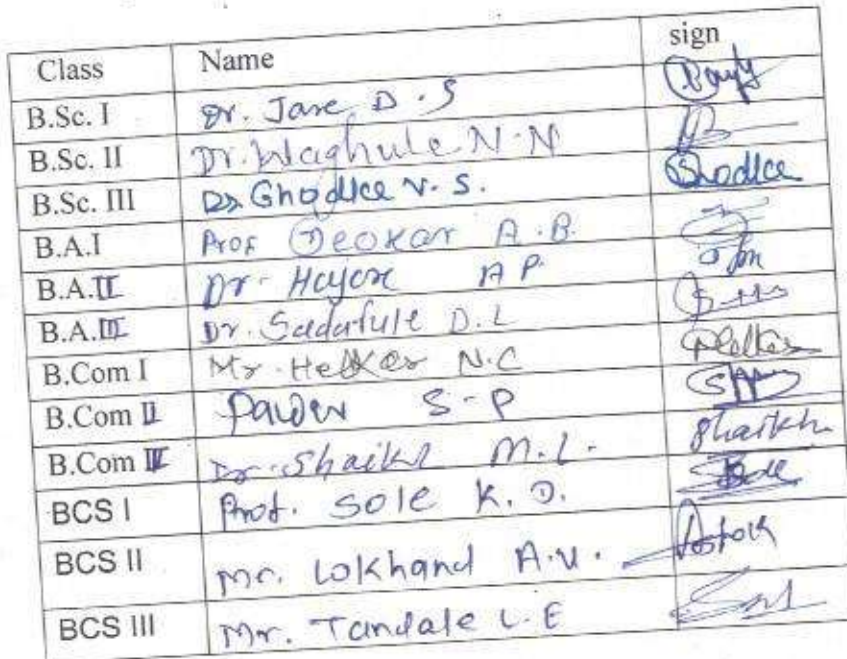 Class Name sign
B.Sc. I Dr. Jare D.S
B.Sc. II Dr. Waghule N.N
B.Sc. III Dr Ghodke V.S. Ghodke
B.A.I Prof Deokar A.B.
B.A.II Dr. Hajare A P.
B.A.III Dr. Sadafule D.L
B.Com I Mr. Helkar N.C
B.Com II Pawar S-P
B.Com III Dr. Shaikh M.L. Shaikh
BCS I Prof. Sole K.D.
BCS II Mr. Lokhand A.V. Ashok
BCS III Mr. Tandale L.E